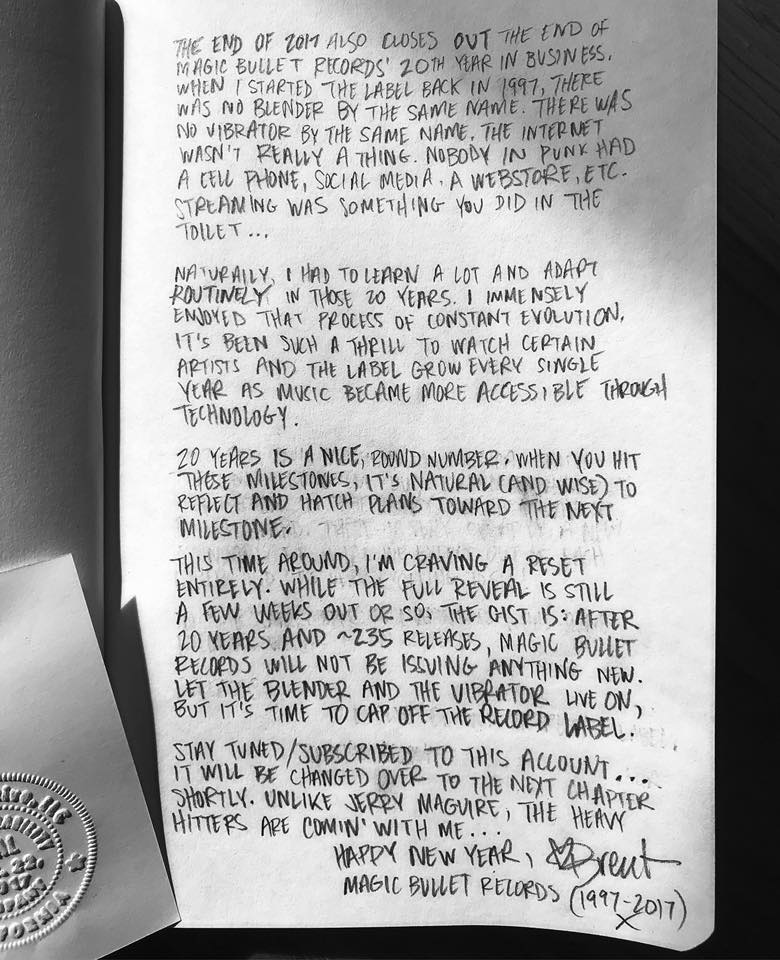 THE END OF 2017 ALSO CLOSES OUT THE END OF
MAGIC BULLET RECORDS' 20TH YEAR IN BUSINESS.
WHEN I STARTED THE LABEL BACK IN 1997, THERE
WAS NO BLENDER BY THE SAME NAME. THERE WAS
NO VIBRATOR BY THE SAME NAME. THE INTERNET
WASN'T REALLY A THING. NOBODY IN PUNK HAD
A CELL PHONE, SOCIAL MEDIA, A WEBSTORE, ETC.
STREAMING WAS SOMETHING YOU DID IN THE
TOILET...
NATURALLY, I HAD TO LEARN A LOT AND ADAPT
ROUTINELY IN THOSE 20 YEARS. I IMMENSELY
ENJOYED THAT PROCESS OF CONSTANT EVOLUTION.
IT'S BEEN SUCH A THRILL TO WATCH CERTAIN
ARTISTS AND THE LABEL GROW EVERY SINGLE
YEAR AS MUSIC BECAME MORE ACCESSIBLE THROUGH
TECHNOLOGY.
20 YEARS IS A NICE, ROUND NUMBER. WHEN YOU HIT
THESE MILESTONES, IT'S NATURAL (AND WISE) TO
REFLECT AND HATCH PLANS TOWARD THE NEXT
MILESTONE.
THIS TIME AROUND, I'M CRAVING A RESET
ENTIRELY. WHILE THE FULL REVEAL IS STILL
A FEW WEEKS OUT OR SO, THE GIST IS: AFTER
20 YEARS AND ~235 RELEASES, MAGIC BULLET
RECORDS WILL NOT BE ISSUING ANYTHING NEW.
LET THE BLENDER AND THE VIBRATOR LIVE ON,
BUT IT'S TIME TO CAP OFF THE RECORD LABEL.
STAY TUNED/SUBSCRIBED TO THIS ACCOUNT...
IT WILL BE CHANGED OVER TO THE NEXT CHAPTER
SHORTLY. UNLIKE JERRY MAGUIRE, THE HEAVY
HITTERS ARE COMIN' WITH ME...
HAPPY NEW YEAR, Brent
MAGIC BULLET RECORDS (1997-2017)
X